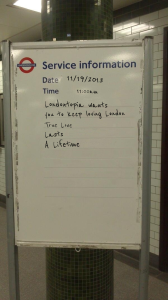 Service information
Date 11/19/2013
Time 11:00am
Londontopia wants
you to keep loving London
True Love
Lasts
A Lifetime